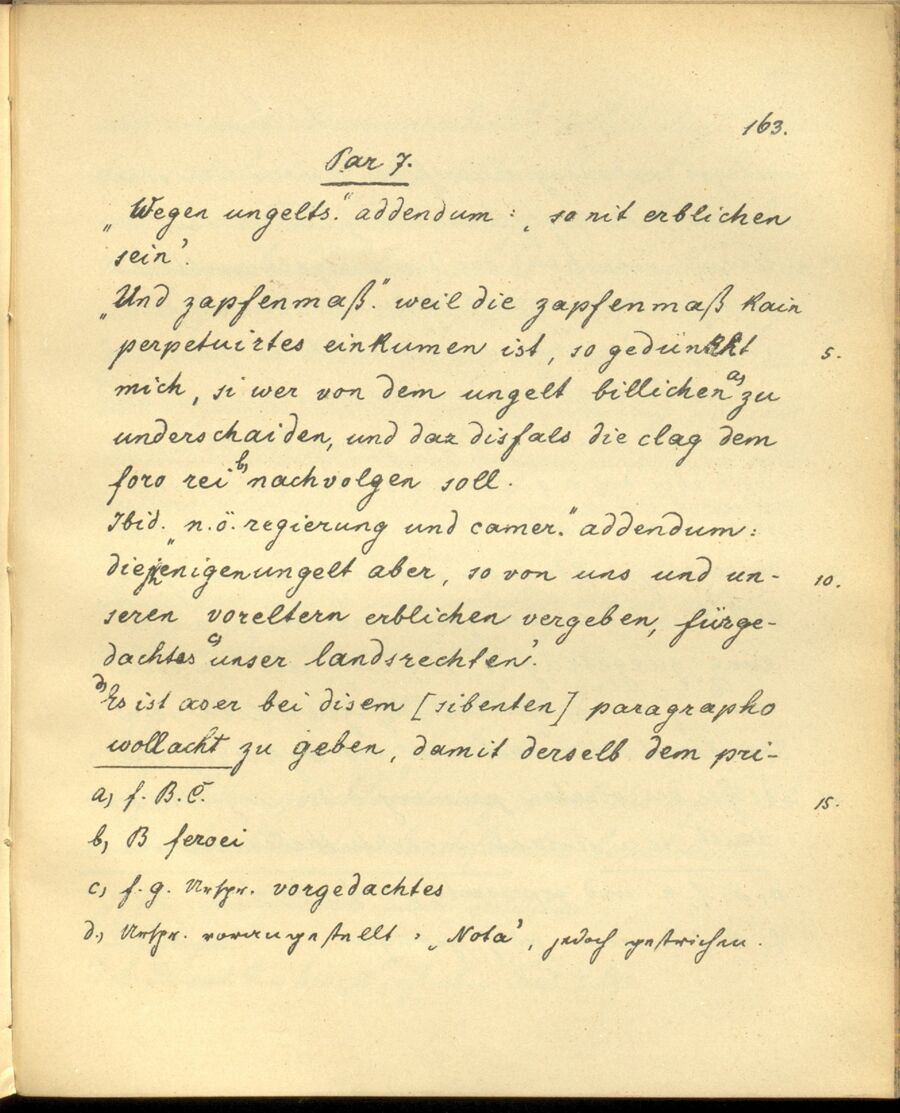 163.
Par 7.
„Wegen ungelts.“ addendum: ‚so nit erblichen
sein’.
„Und zapfenmaß.“ weil die zapfenmaß kain
perpetuirtes einkumen ist, so gedünkt 5.
mich, si wer von dem ungelt billichen a) zu
underschaiden, und daz disfals die clag dem
foro rei b) nachvolgen soll.
Ibid. „n.ö. regierung und camer.“ addendum:
diejenigen ungelt aber, so von uns und un- 10.
seren voreltern erblichen vergeben, fürge-
dachtes c) unser landsrechten’.
d) Es ist aber bei disem [sibenten] paragrapho
wollacht zu geben, damit derselb dem pri-
a, f. B. C. 15.
b, B feroei
c, f. g. Urspr. vorgedachtes
d., Urspr. vorangestellt: ‚Nota’, jedoch gestrichen.